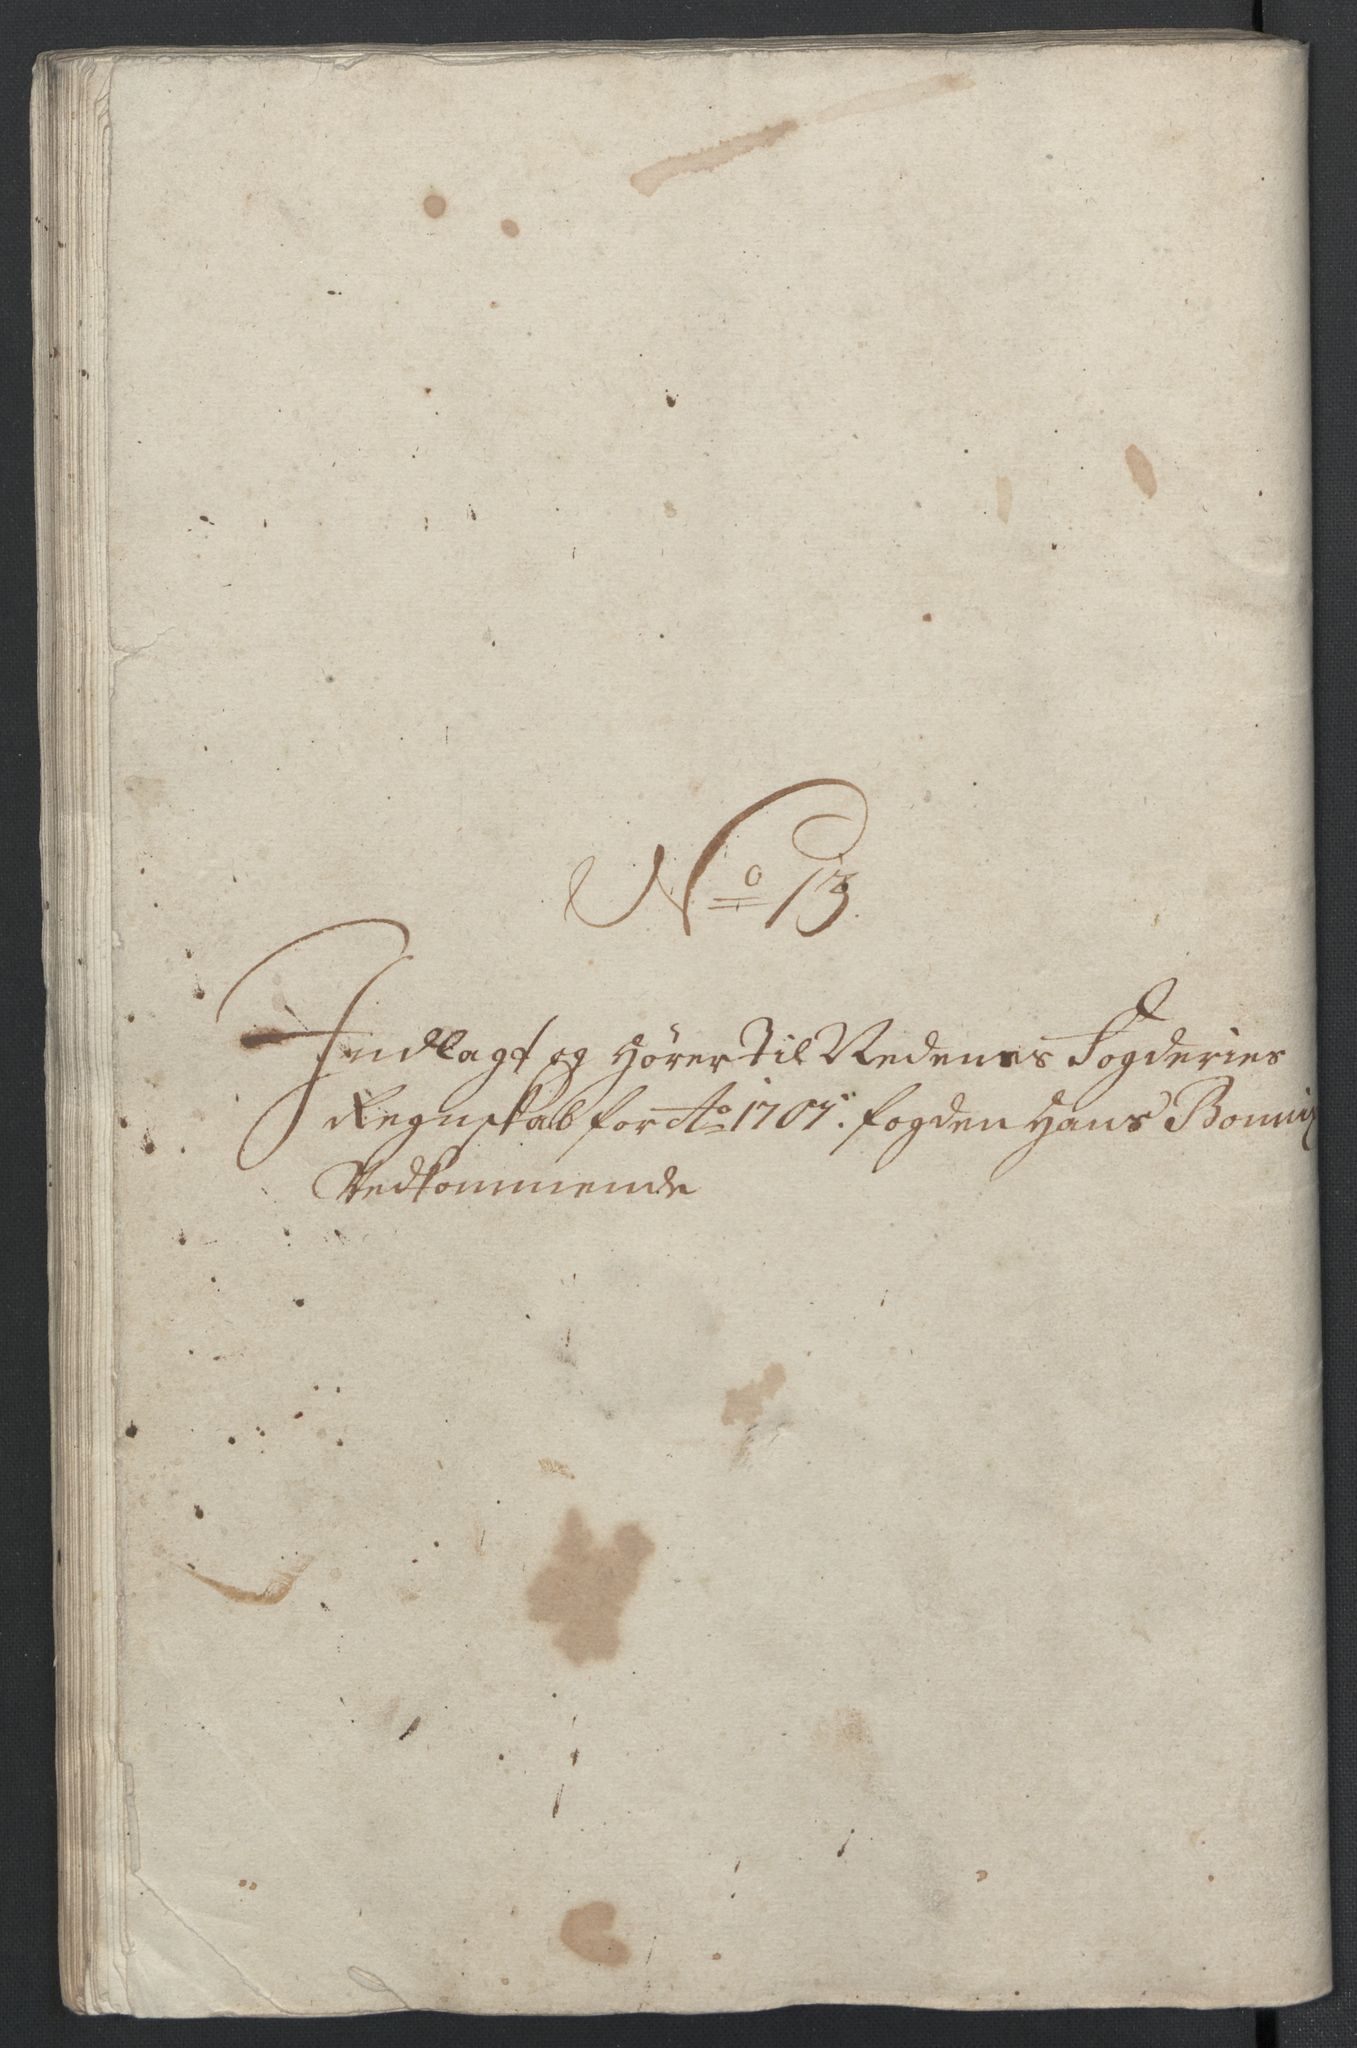 No 13.
Indlagt og hører Til Nedenes Fogderies
Regnskab for Ao 1707. fogden Hans
Vedkommende